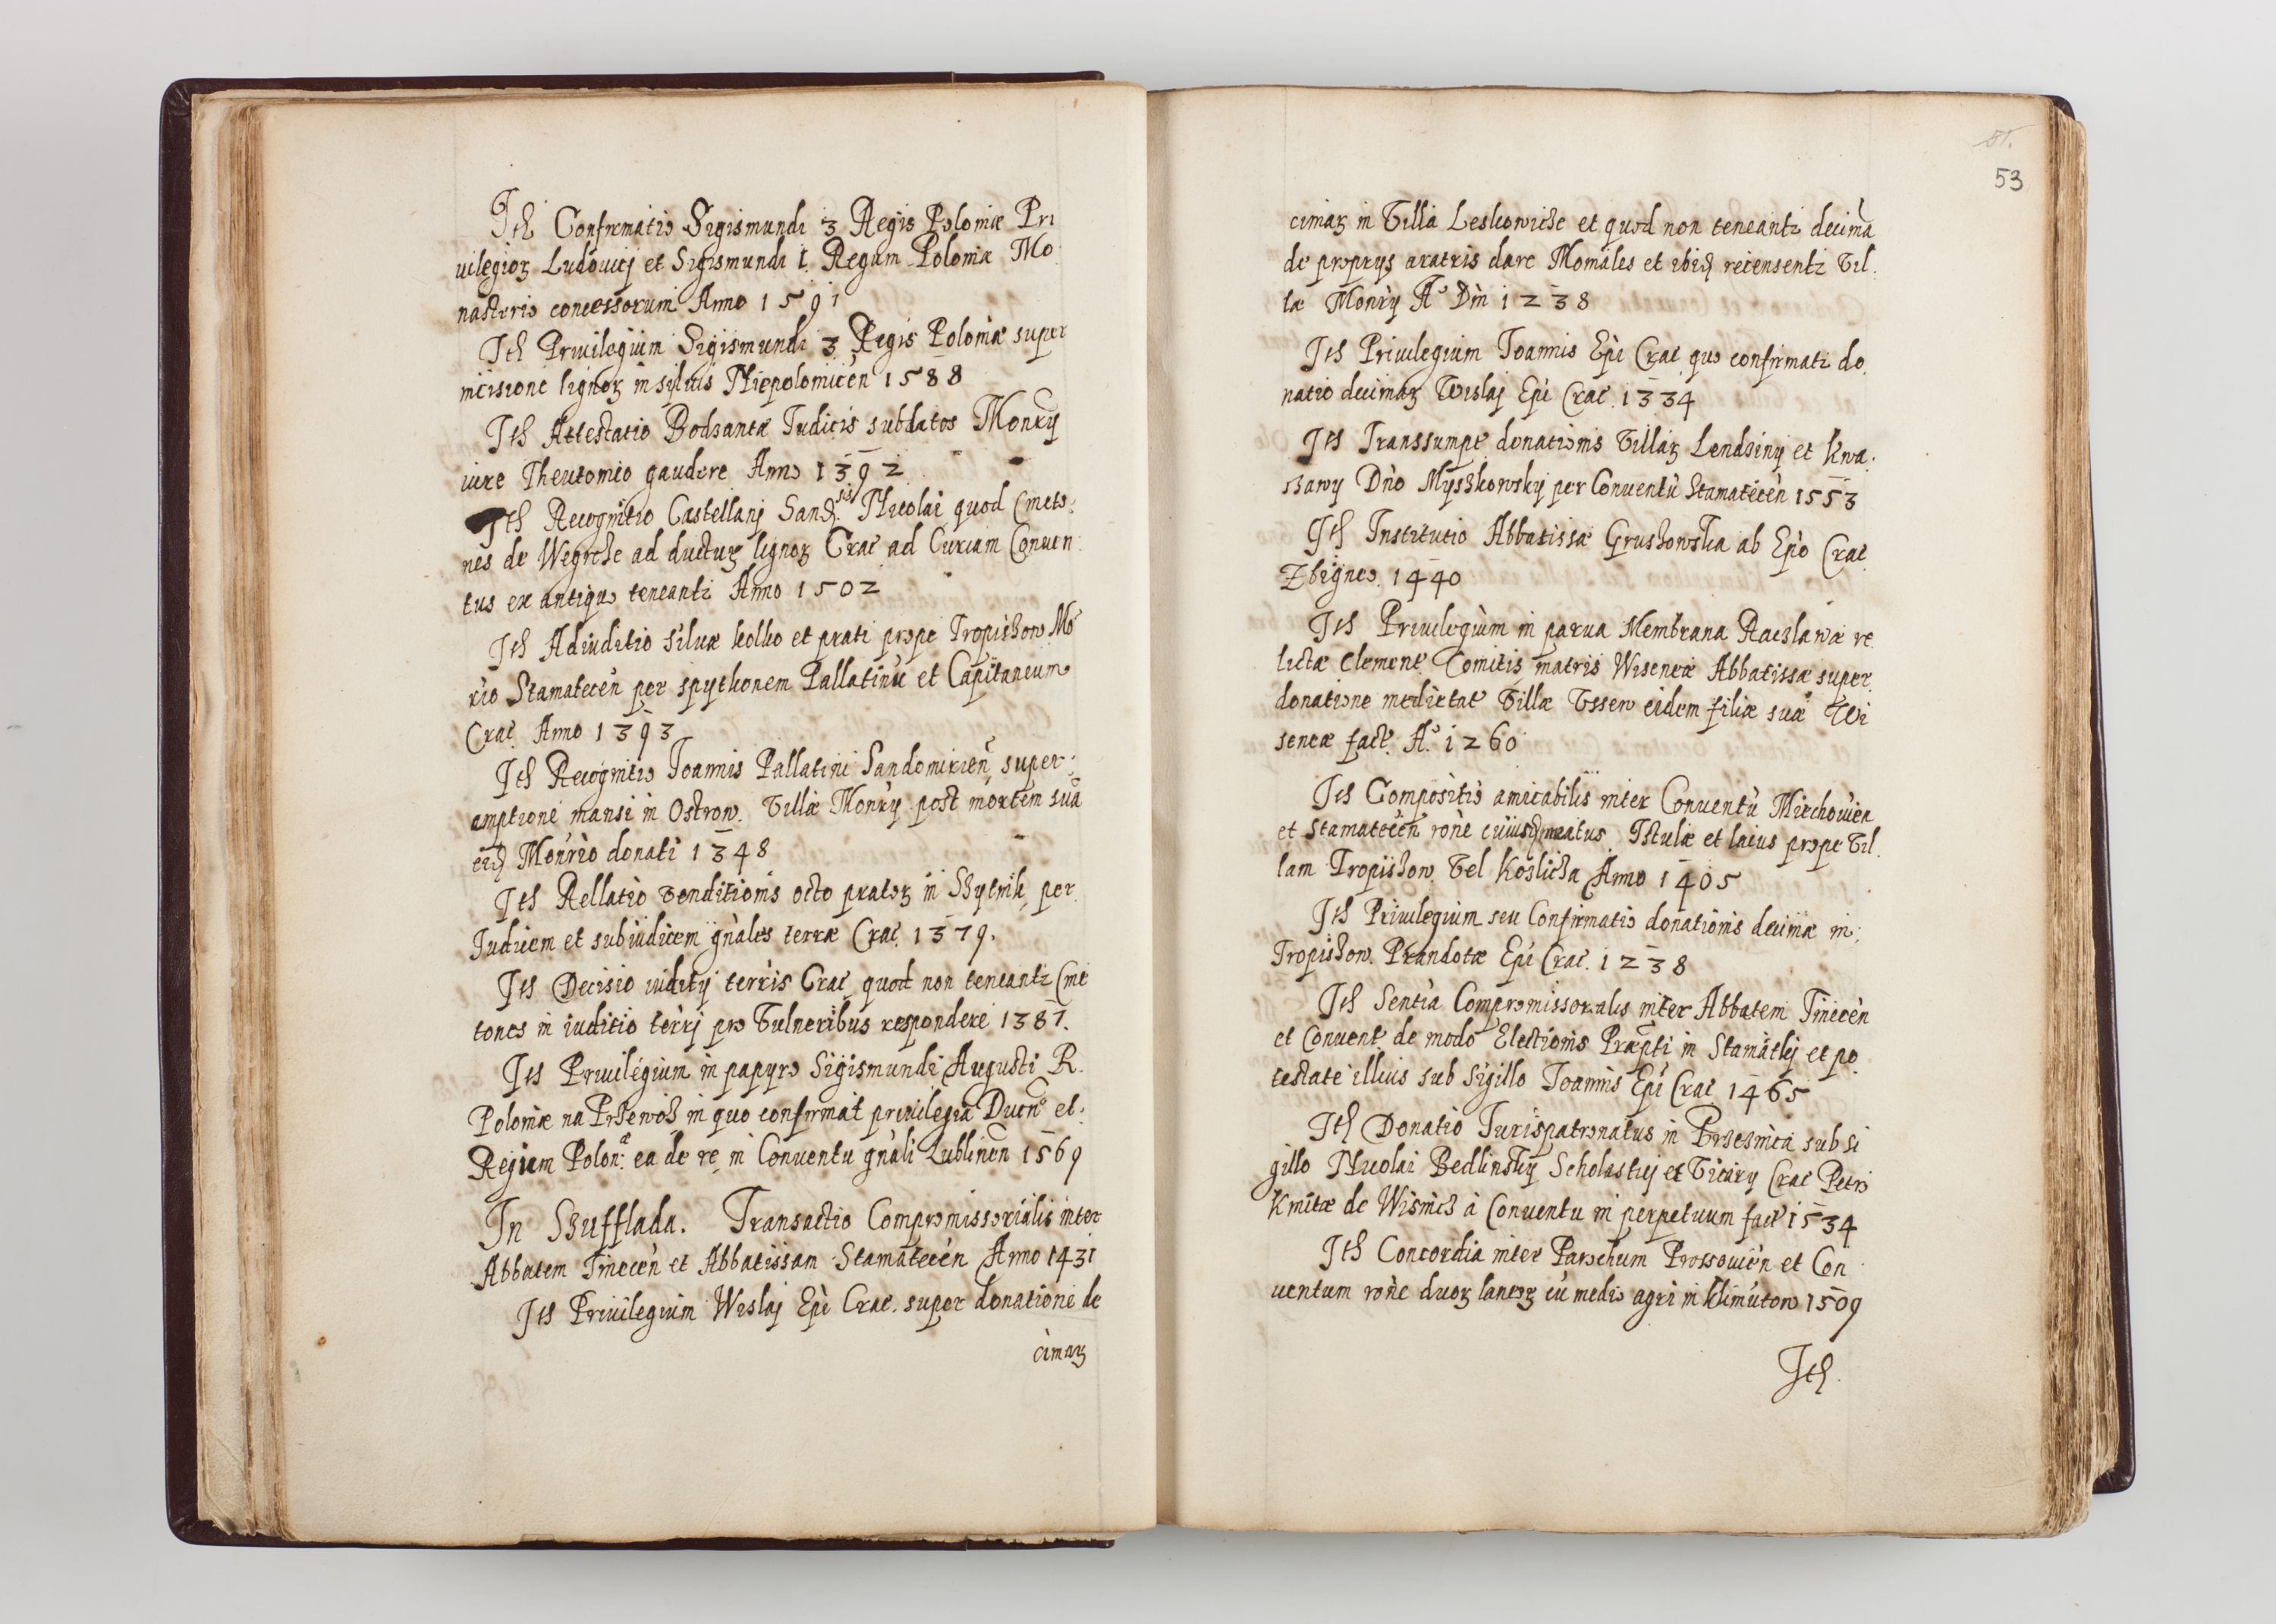 Ith Confirmatio Sigismundi 3 Regis Poloniæ Pri
uilegioꝝ Ludouicj et Sigismundi 1. Regum Poloniæ Mo
nasterio concessorum Anno 1591
Ith Priuilegium Sigismundi 3 Regis Poloniæ super
incisione lignoꝝ in siluis Niepolomicen 1588
Ith Attestatio Bodzantæ Iudicis subdatos Monrÿ
iure Theutonico gaudere Anno 1392
Ith Recognitio Castellanj Sand. Nicolai quod Cmeto:
nes de Wegrche ad ductuꝝ lignoꝝ Crac ad Curiam Conuen:
tus ex antiquo teneantr Anno 1502
Ith Adiuditio siluæ kolko et prati prope Tropishow Mo
rio Stamatecen per spytkonem Pallatinu et Capitaneum
Crac. Anno 1393
Ith Recognitio Ioannis Pallatini Sandomirien, super:
emptione mansi in Ostrow. Villæ Monrÿ post mortem suã
Monrio donati 1348
Ith Rellatio venditionis octo pratoꝝ in per
Iudicem et subiudicem gnales terræ Crac. 1379.
Ith Decisio iuditÿ terris Crac quod non teneantr Cme
tones in iuditio terrj pro Vulneribus respondere 1387.
Ith Priuilegium in papyro Sigismundi Augusti R.
Poloniæ na Przewoz in quo confirmat priuilegia Ducu et:
Regum Polon. ea de re in Conuentu gnali Lublinen 1569
In Szufflada. Transactio Compromissorialis inter
Abbatem Tinecen et Abbatissam Stamatecen Anno 1431
Ith Priuilegium Wislaj Epi Crac. super donatione de
cimaꝝ
51.
53
cimaꝝ in Villa Leskowicze et quod non teneantr decimã
de proprÿs aratris dare Moniales et ibid recensentr Vil:
læ Monrÿ Ao Dni 1238
Ith Priuilegium Ioannis Epi Crac. quo confirmatr do
natio decimaꝝ Wislaj Epi Crac. 1334
Ith Transsumpt donationis Villaꝝ Lendziny et Kwa:
szawy Dno Myszkowsky per Conuentu Stamatecen 1553
Ith Institutio Abbatissæ Gruszowska ab Epo Crac
Zbigneo. 1440
Ith Priuilegium in parua Membrana Raczlawæ re
lictæ Clement Comitis matris Wisencæ Abbatissæ super
donatione medietat Villæ Vssew eidem filiæ suæ Wi
sencæ fact. Ao 1260
Ith Compositio amicabilis inter Conuentu Miechouien
et Stamatecen rone Istulæ et lacus prope Vil
lam Tropishow Vel Kozlicha Anno 1405
Ith Priuilegium seu Confirmatio donationis decimæ in:
Tropishow. Prandotæ Epi Crac. 1238
Ith Sentia Compromissorialis inter Abbatem Tinecen
et Conuent de modo Electionis Præpti in Stamatkj et po
testate illius sub sigillo Ioannis Epi Crac 1465
Ith Donatio Iurispatronatus in Brzeznica sub si
gillo Nicolai Bedlinsky Scholasticj et Vicarÿ Crac Petro
Kmitæ de Wisnicz a Conuentu in perpetuum fact 1534
Ith Concordia inter Parochum Prossouien et Con
uentum rone duoꝝ laneoꝝ cu medio agri in Klimuton 1509
Ith.